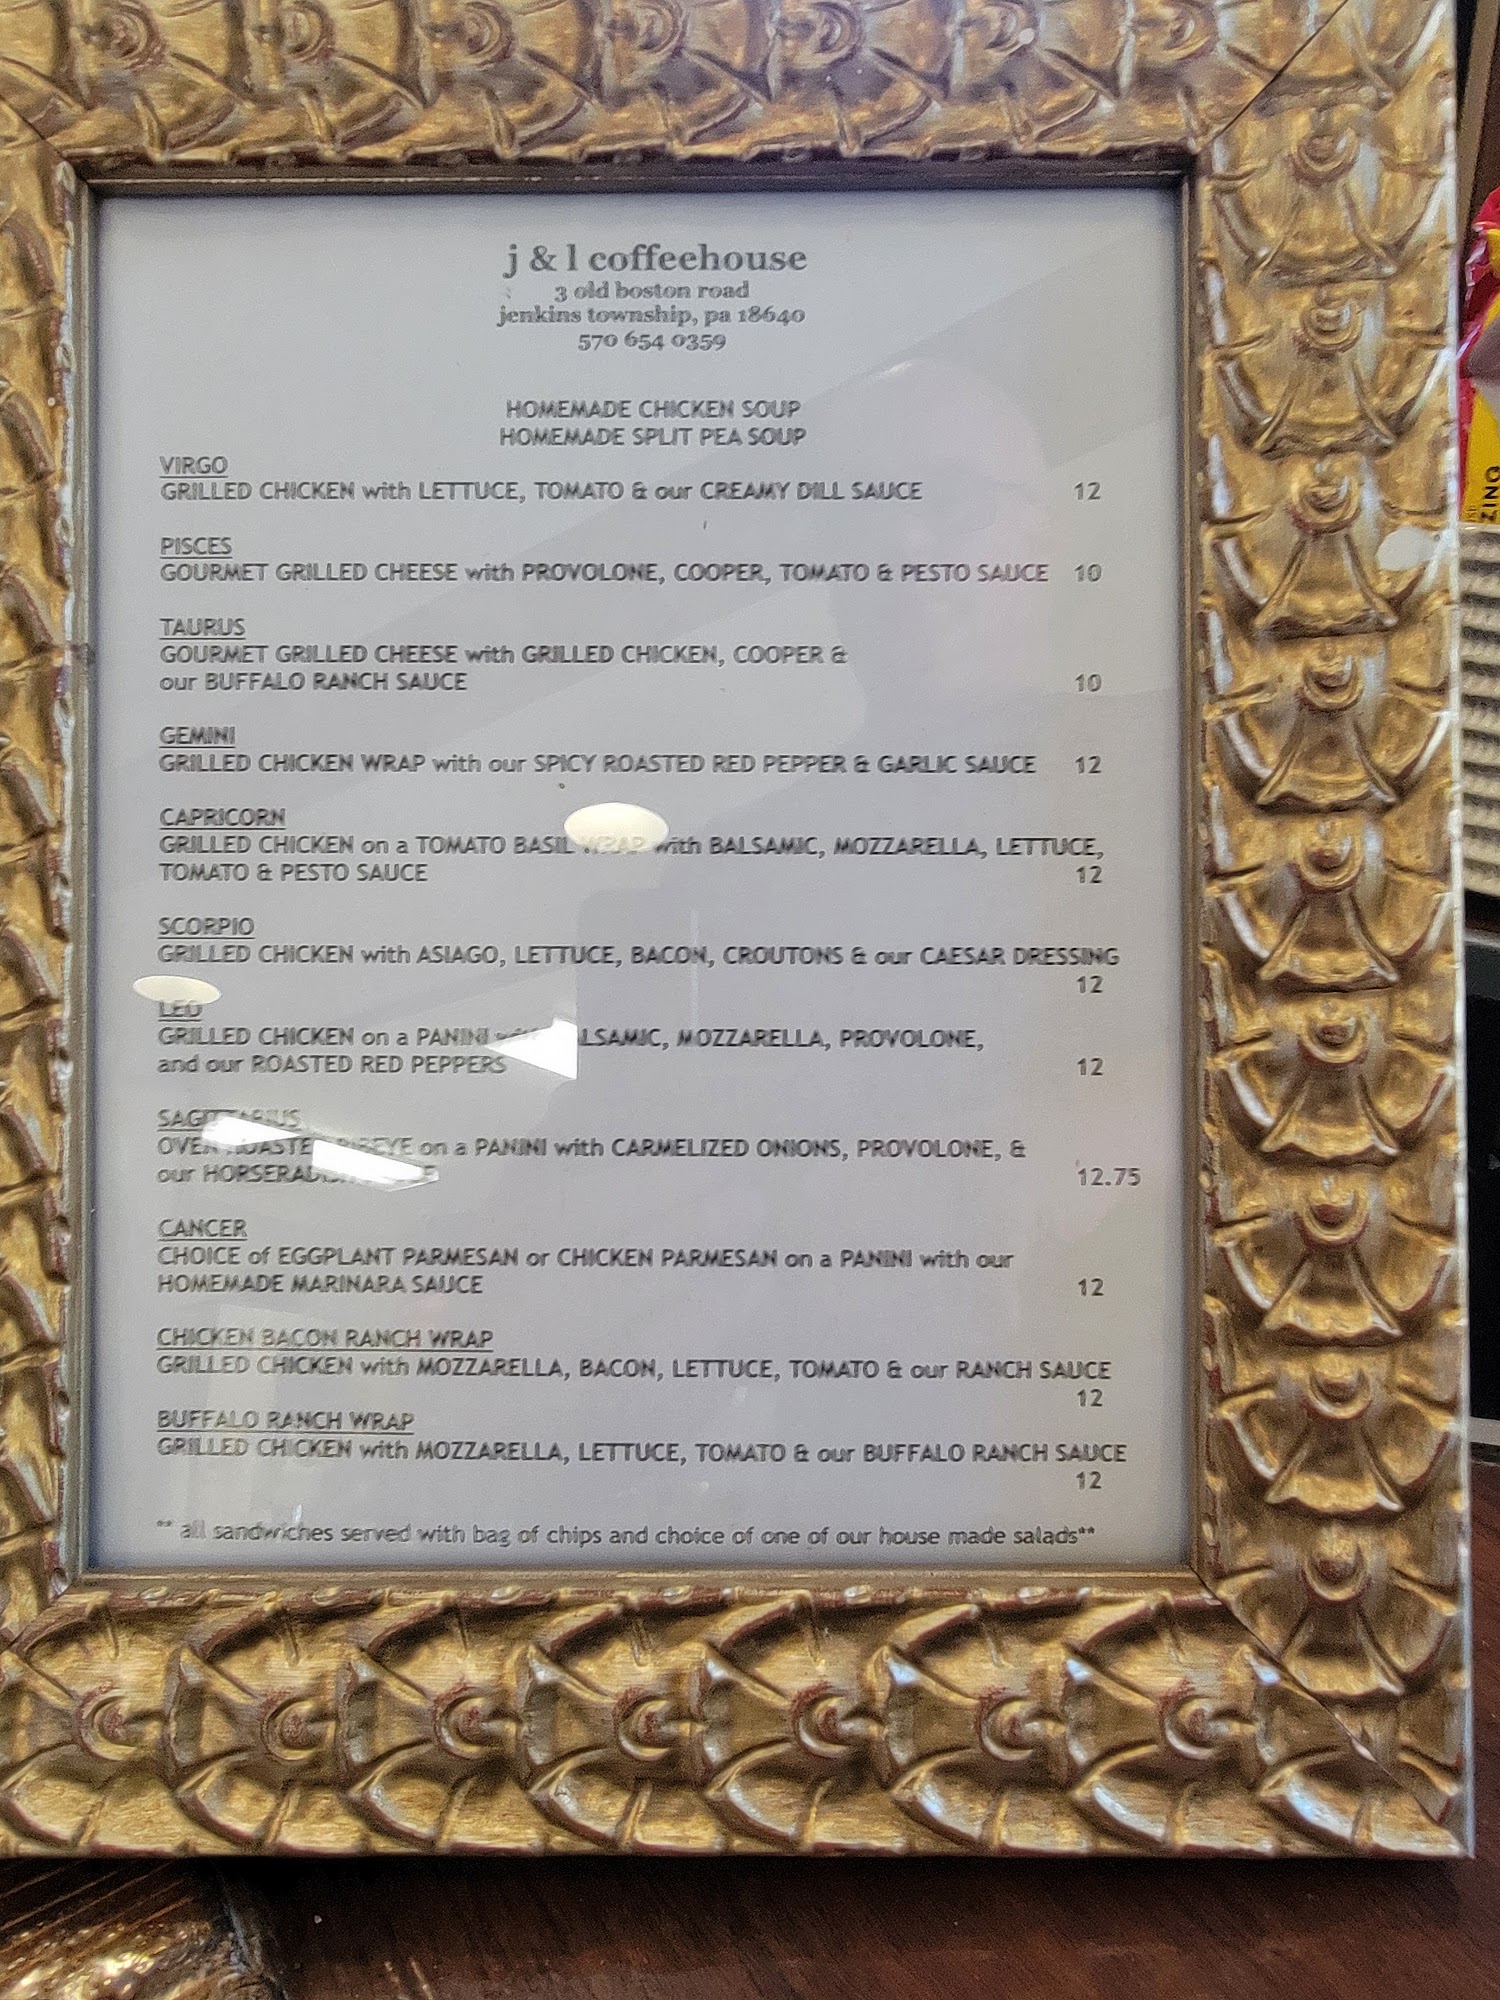 j & l coffeehouse
3 old boston road
jenkins township, pa 18640
570 654 0359
HOMEMADE CHICKEN SOUP
HOMEMADE SPLIT PEA SOUP
VIRGO
GRILLED CHICKEN with LETTUCE, TOMATO & our CREAMY DILL SAUCE 12
PISCES
GOURMET GRILLED CHEESE with PROVOLONE, COOPER, TOMATO & PESTO SAUCE 10
TAURUS
GOURMET GRILLED CHEESE with GRILLED CHICKEN, COOPER &
our BUFFALO RANCH SAUCE 10
GEMINI
GRILLED CHICKEN WRAP with our SPICY ROASTED RED PEPPER & GARLIC SAUCE 12
CAPRICORN
GRILLED CHICKEN on a TOMATO BASIL WRAP with BALSAMIC, MOZZARELLA, LETTUCE,
TOMATO & PESTO SAUCE 12
SCORPIO
GRILLED CHICKEN with ASIAGO, LETTUCE, BACON, CROUTONS & our CAESAR DRESSING
12
LEO
GRILLED CHICKEN on a PANINI with BALSAMIC, MOZZARELLA, PROVOLONE,
and our ROASTED RED PEPPERS 12
SAGITTARIUS
OVEN ROASTED RIBEYE on a PANINI with CARMELIZED ONIONS, PROVOLONE, &
our HORSERADISH 12.75
CANCER
CHOICE of EGGPLANT PARMESAN or CHICKEN PARMESAN on a PANINI with our
HOMEMADE MARINARA SAUCE 12
CHICKEN BACON RANCH WRAP
GRILLED CHICKEN with MOZZARELLA, BACON, LETTUCE, TOMATO & our RANCH SAUCE
12
BUFFALO RANCH WRAP
GRILLED CHICKEN with MOZZARELLA, LETTUCE, TOMATO & our BUFFALO RANCH SAUCE
12
** all sandwiches served with bag of chips and choice of one of our house made salads**
ZINO